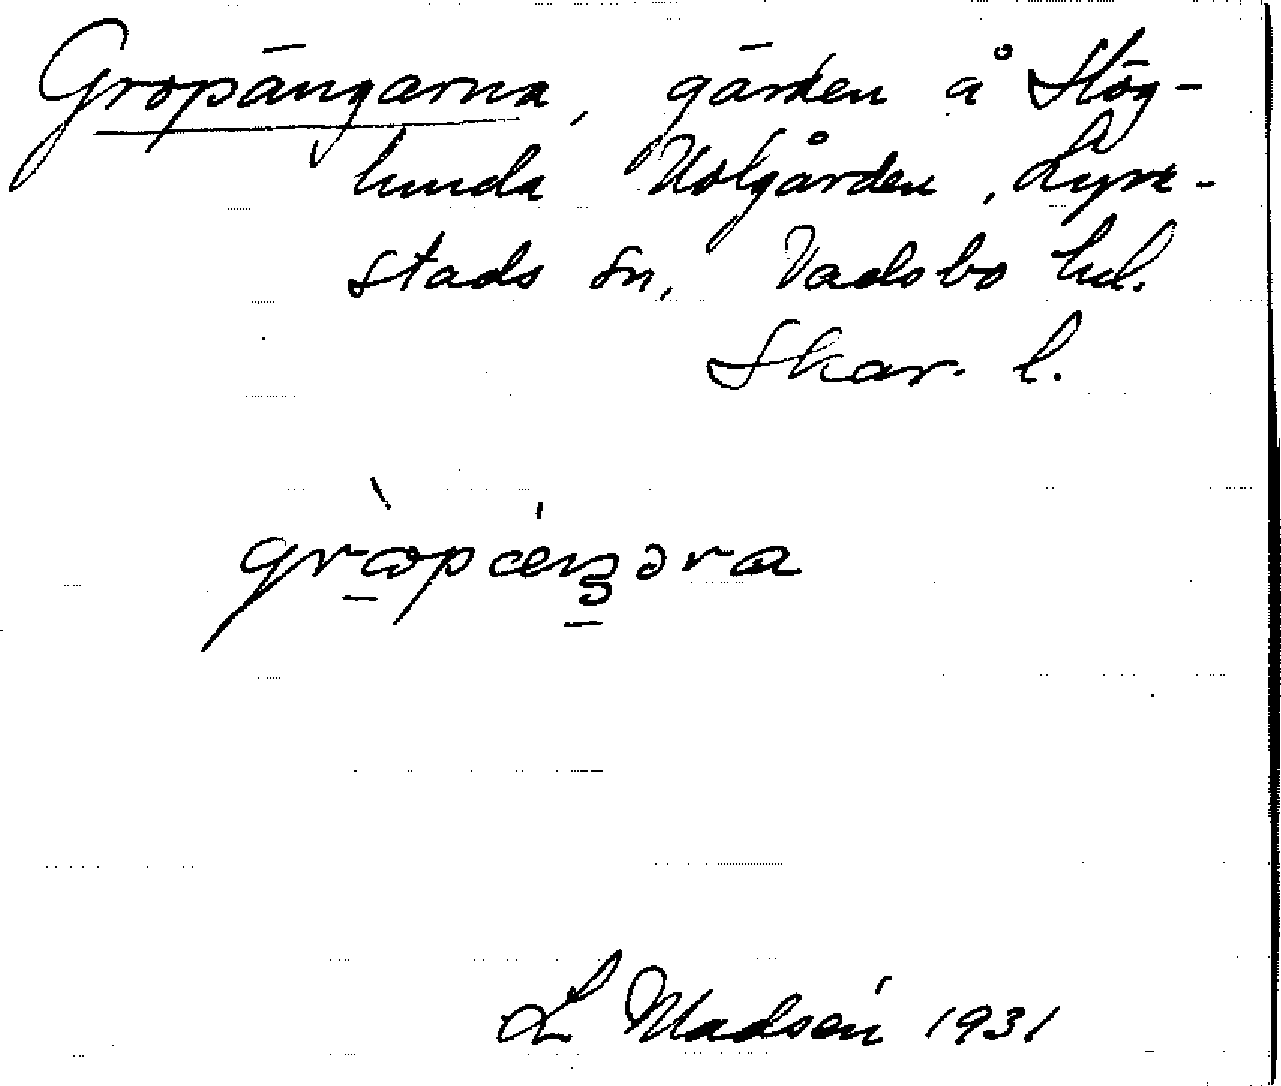 Gropängarna, gärden å Hög-
lunda Nolgården, Lyre-
stads sn, Vadsbo hd.
Skar. l.
L Madsén 1931